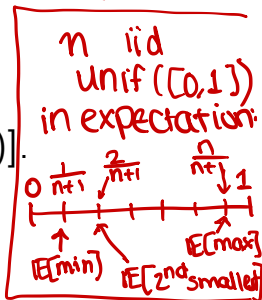 n iid
unif([0,1])
in expectation:
)].
0 1/n+1 2/n+1 n/n+1 1
IE[min) IE[2nd smallest] IE[max]